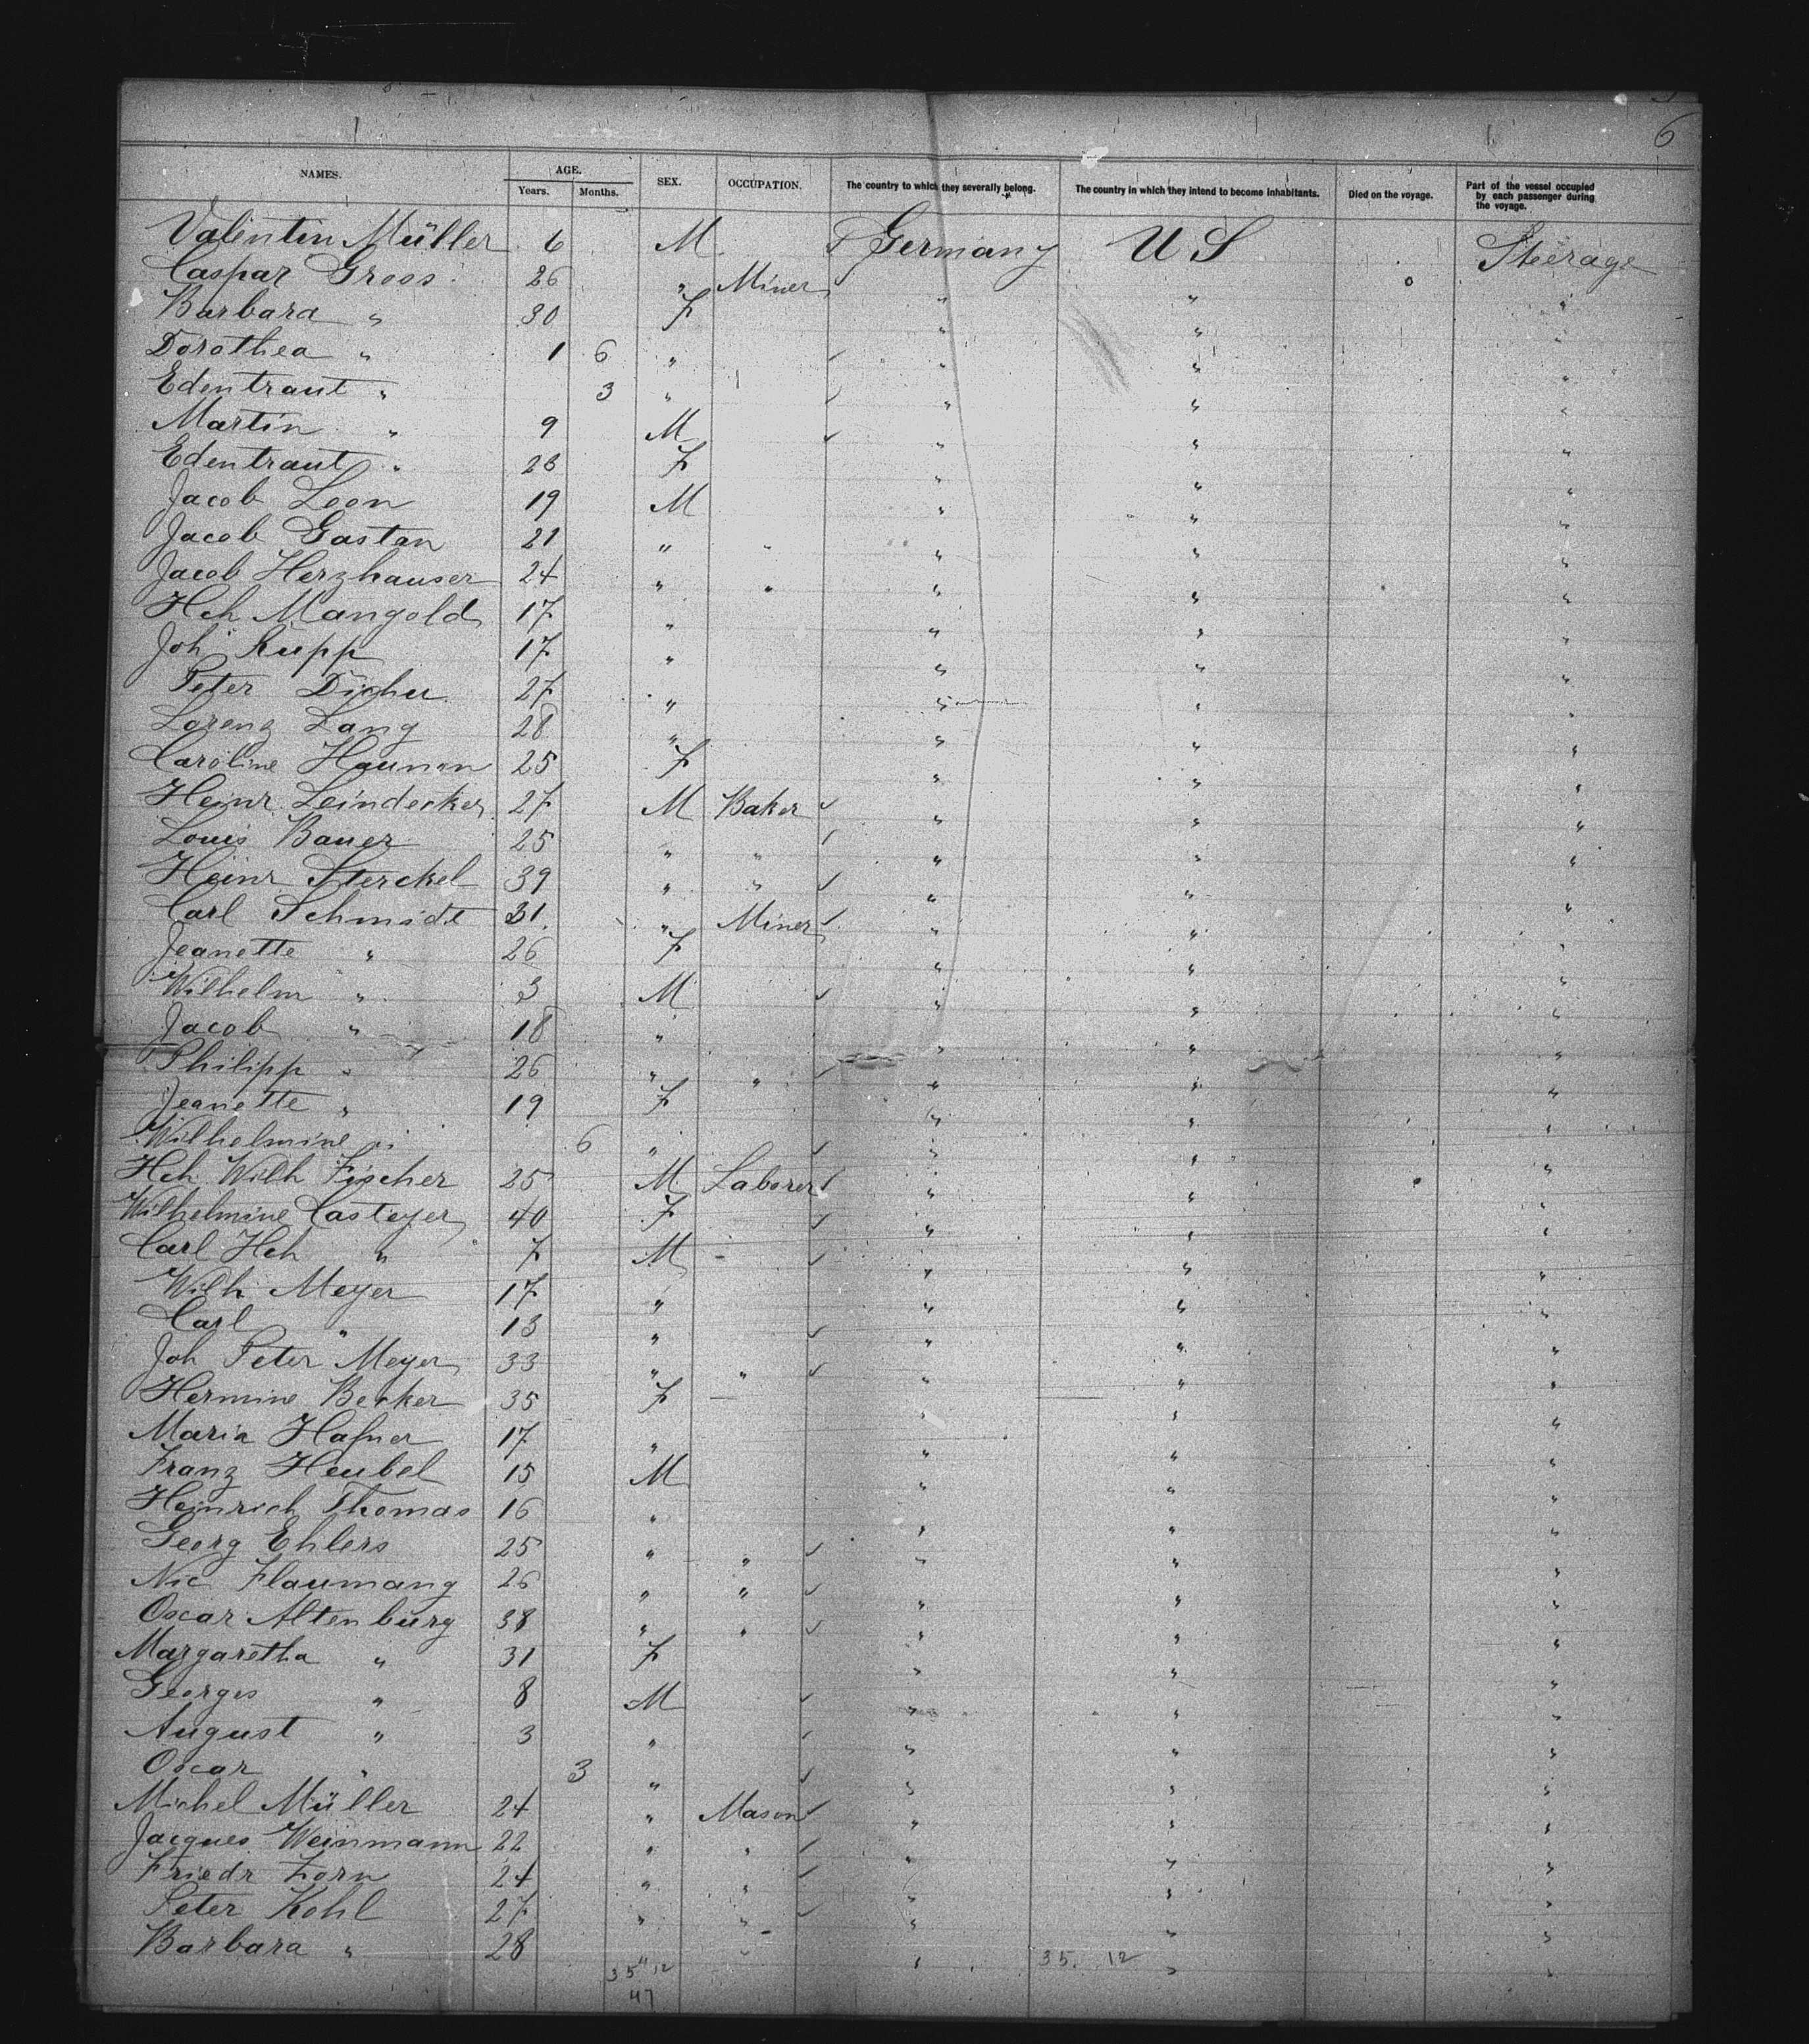 6
NAMES. AGE. SEX. OCCUPATION. The country to which they severally belong. The country in which they intend to become inhabitants. Died on the voyage. Part of the vessel occupied by each passenger during the voyage.
Years. Months.
Valentin Müller 6 M Germany U S Steerage
Caspar Gross 26 " Miner " " "
Barbara " 30 F " " "
Dorothea " 1 6 " " " "
Edentraut " 3 " " " "
Martin " 9 M " " "
Edentraut " 28 F " " "
Jacob Leon 19 M " " "
Jacob Gastan 21 " " " " "
Jacob Herzhauser 24 " " " " "
Hch Mangold 17 " " " "
Joh Rupp 17 " " " "
Peter 27 " " " "
Lorenz Lang 28 " " " "
Caroline Haunan 25 F " " "
Heinr. Leindecker 27 M Baker " " "
Louis Bauer 25 " " " " "
Heinr Sterckel 39 " " " " "
Carl Schmidt 31 " Miner " " "
Jeanette " 26 F " " "
Wilhelm " 3 M " " "
Jacob " 18 " " " "
Philipp " 26 " " " " "
Jeanette " 19 F " " "
Wilhelmine " 6 " " " "
Hch Wilh Fischer 25 M Laborer " " "
Wilhelmine Casteyer 40 F " " "
Carl Hch " 7 M " " "
Wilh Meyer 17 " " " "
Carl " 13 " " " "
Joh Peter Meyer 33 " " " " "
Hermine Becker 35 F " " "
Maria Hafner 17 " " " "
Franz Heubel 15 M " " "
Heinrich Thomas 16 " " " "
Georg Ehlers 25 " " " " "
Nic Flaumang 26 " " " " "
Oscar Altenburg 38 " " " " "
Margaretha " 31 F " " "
Georges " 8 M " " "
August " 3 " " " "
Oscar " 3 " " " "
Michel Müller 24 " Mason " " "
Jacques Weinmann 22 " " " " "
Friedr Zorn 24 " " " " "
Peter Kohl 27 " " " " "
Barbara " 28 " " "
35 " 12 35. 12
47